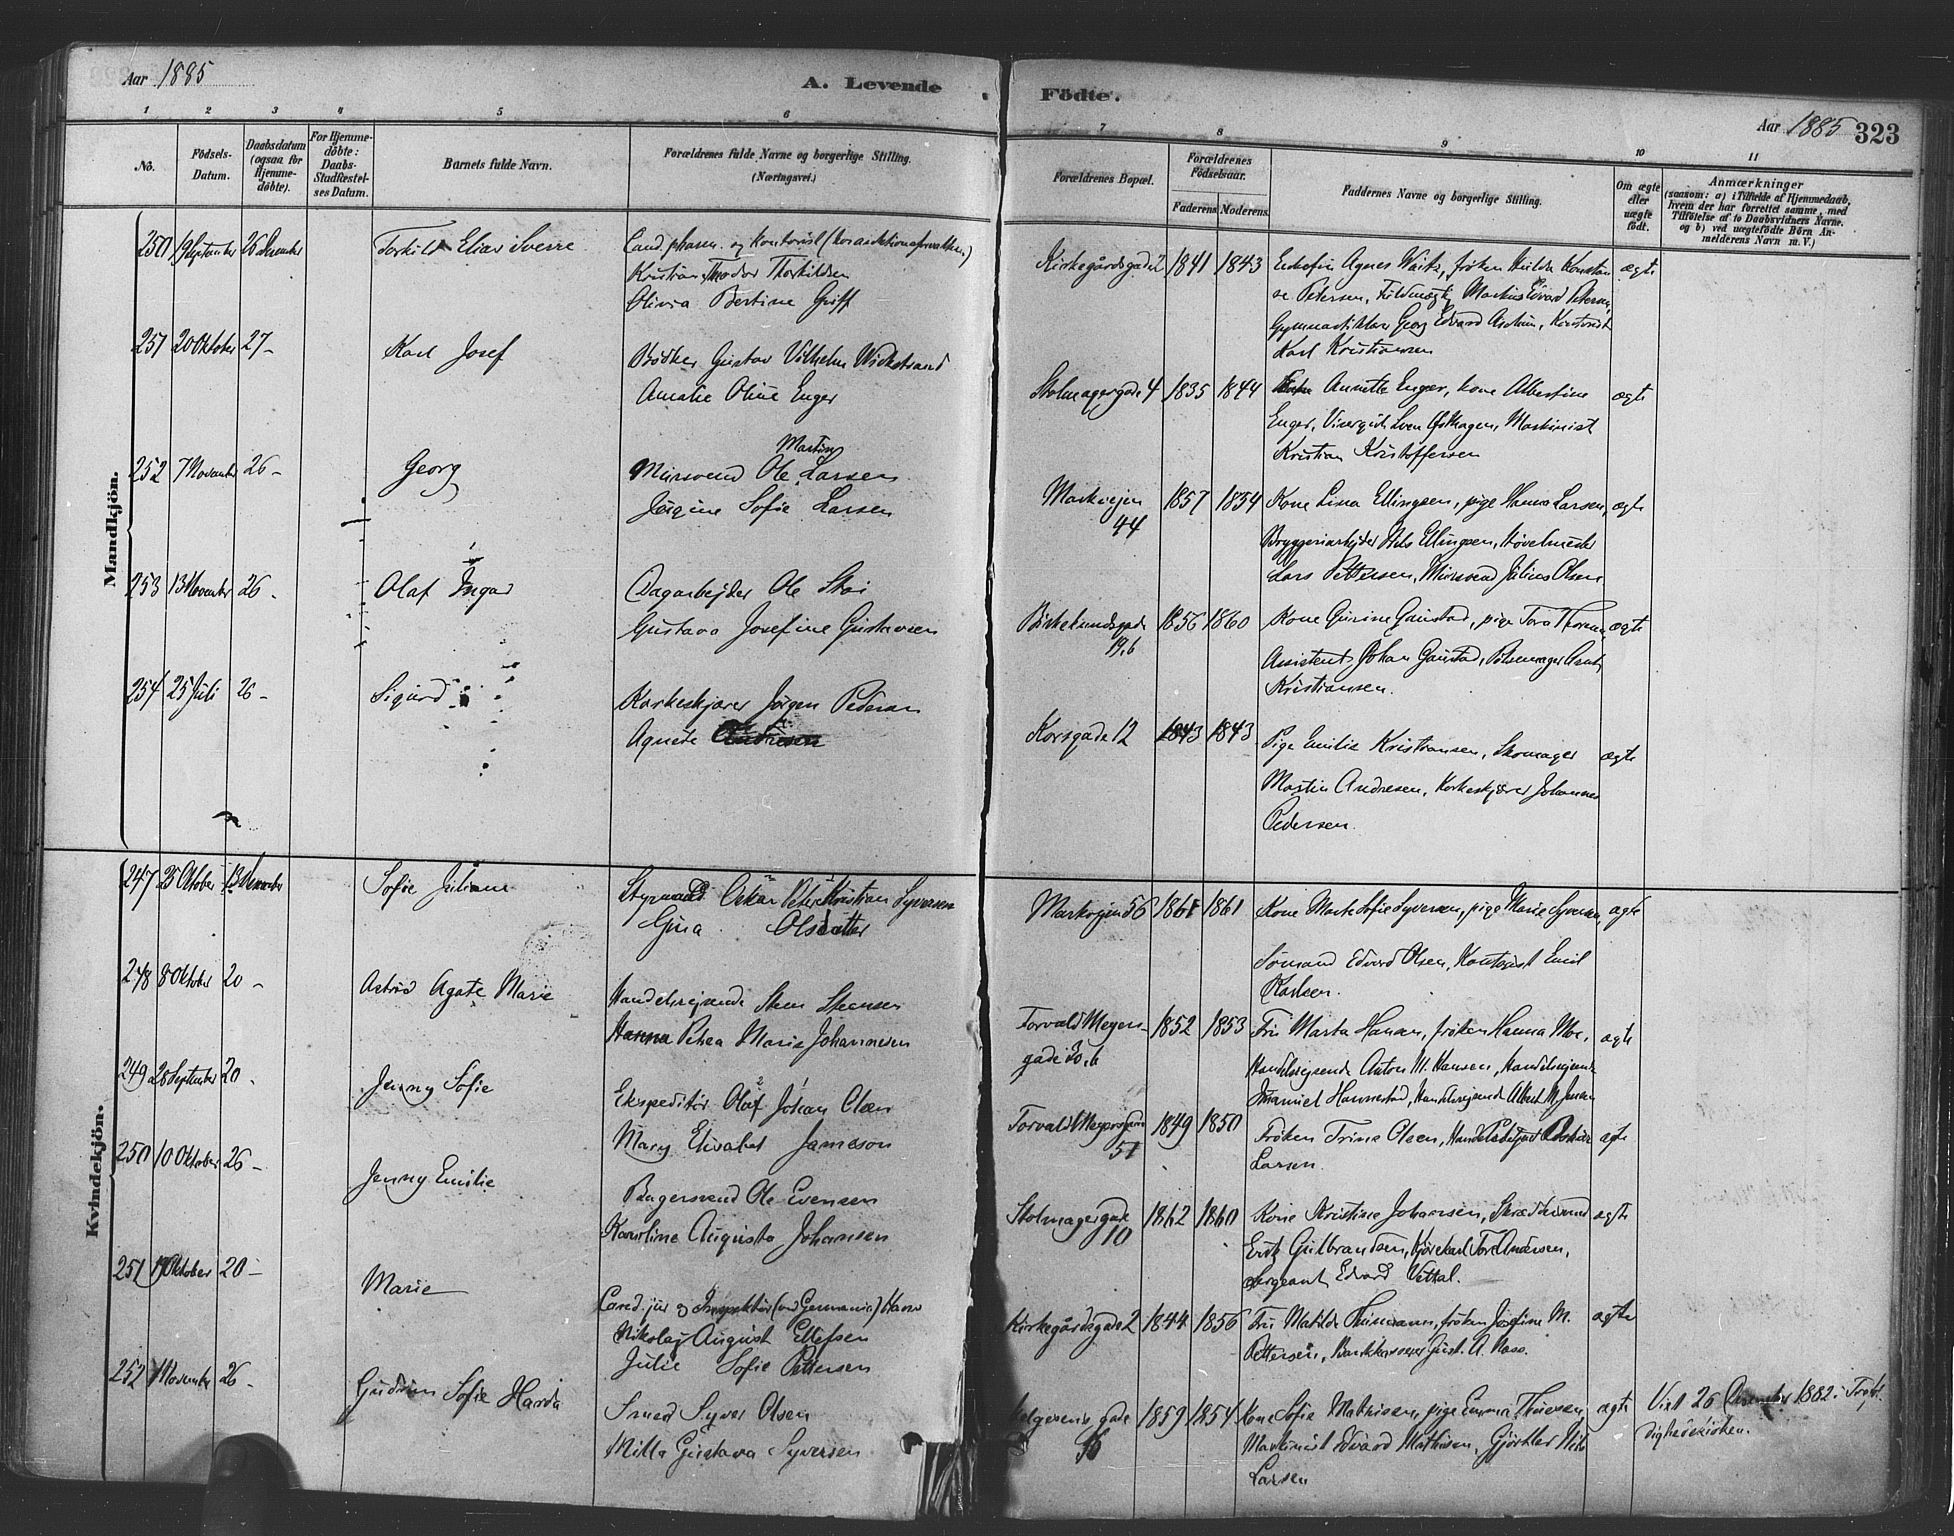 Aar 1885
A. Levende
1 2 3 4 5 6
No.
Födsels-
Datum.
Daabsdatum
(ogsaa for
Hjemme-
döbte).
For Hjemme-
döbte:
Daabs-
Stadfæstel-
ses Datum.
Barnets fulde Navn.
Forældrenes fulde Navne og borgerlige Stilling.
(Næringsvei.)
Mandkjön.
250 19 September 26 December Torkild Elias Sverre Cand. pharm. og kontorist
Kristian Theodor Thorkildsen
Olivia Bertine Griff
251 20 Oktober 27 - Karl Josef Bödker Gustav Vilhelm Wickstrand
Amalie Oline Enger
Martin
252 7 November 26 - Georg Mursvend Ole Larsen
Jörgine Sofie Larsen
253 13 November 26 - Olaf Ingar Dagarbejder Ole Skoi
Gustava Josefine Gustavsen
254 25 Juli 26 - Sigurd Korkeskjærer Jörgen Pedersen
Agnete Andresen
Kvindekjön.
247 25 Oktober 13 December Sofie Juliane Styrmand Oskar Peter Kristian Syversen
Gina Olsdatter
248 8 Oktober 20 - Astrid Agate Marie Handelsrejsende Steen Steensen
Hanna Petrea Marie Johannesen
249 28 September 20 - Jenny Sofie Ekspeditör Olaf Johan Olsen
Mary Elisabet Jameson
250 10 Oktober 26 - Jenny Emilie Bagersvend Ole Evensen
Karoline Augusta Johansen
251 19 Oktober 20 - Marie Cand. jur og Inspektör (ved Germania) Hans
Nikolaj August Ellefsen
Julie Sofie Pettersen
252 1 November 26 - Gudrun Sofie Harda Smed Syver Olsen
Milla Gustava Syversen
Födte.
Aar 1885 323
7 8 9 10 11
Forældrenes Bopæl.
Forældrenes
Födselsaar.
Faderens. Moderens.
Faddernes Navne og borgerlige Stilling.
Om ægte
eller
uægte
födt.
Anmærkninger
(saasom: a) i Tilfælde af Hjemmedaab,
hvem der har forrettet samme, med
Tilföielse af to Daabsvidners Navne.
og b) ved uægtefödte Börn An-
melderens Navn m. V.)
Kirkegårdsgade 2 1841 1843 Enkefru Agnes Waitz, fröken Hulda Konstan
se Petersen, Fuldmægtig Markus Edvard Petersen,
Georg Edvard
Karl Kristiansen
ægte
Stolmagergade 4 1835 1844 Annette Enger, kone Albertine
Enger, Visergut Sven Östhagen, Maskinist
Kristian Kristoffersen
ægte
Markvejen
44
1857 1854 Kone Lina Ellingsen, pige Hanna Larsen,
Bryggeriarbejder Nils Ellingsen, Hövelmester
Lars Pettersen, Mursvend Julius Olsen
ægte
Birkelundsgade
19.b
1856 1860 Kone Gurine Gaustad, pige Tora Thoresen,
Assistent Johan Gaustad, Pölsemager Arnt
Kristiansen.
ægte
Korsgade 12 1843 1843 Pige Emilie Kristiansen, Skomager
Martin Andresen, Korkeskjærer Johannes
Pedersen.
ægte
Markvejen 56 1861 1861 Kone Marte Sofie Syversen, pige Marie Syversen,
Sömand Edvard Olsen, Kontorist Emil
Karlsen.
ægte
Torvald Meyers-
gade 30.b
1852 1853 Fru Marta Hansen, fröken Hanna Moe,
Handelsrejsende Anton M. Hansen, Handelsrejsende
Hannestad, Handelsrejsende Albert M. Jensen
ægte
Torvald Meyersgade
51
1849 1850 Fröken Trine Olsen,
Larsen.
ægte
Stolmagergade
10
1862 1860 Kone Kristine Johansen, Skræddersvend
Erik Gulbrandsen, Kjörekarl Tore Andersen,
Sergeant Edvard Vettal.
ægte
Kirkegårdsgade 2 1844 1856 Fru Matilde Thiemann, fröken Josefine M.
Pettersen, Bankkasserer Just. A. Naso.
ægte
Helgesens gade 1859 1854 Kone Sofie Mathisen, pige Emma Thuesen,
Maskinist Edvard Mathisen, Gjörtler Nils
Larsen
ægte
Viet 26 December 1882 i Trefol
dighedskirken.